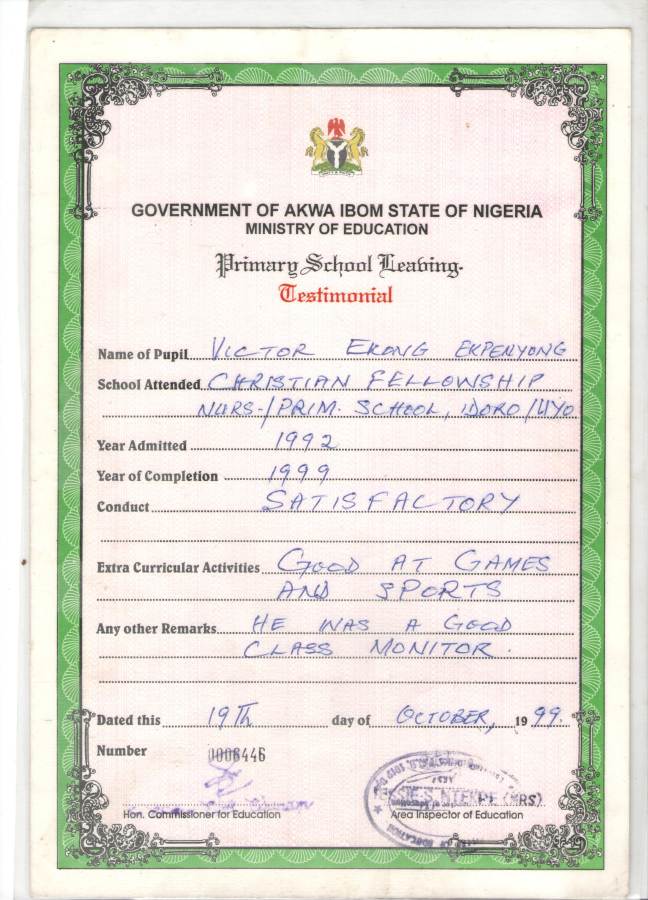 GOVERNMENT OF AKWA IBOM STATE OF NIGERIA
MINISTRY OF EDUCATION
Primary School Leaving
Testimonial
Name of Pupil VICTOR EKONG EKPENYONG
School Attended CHRISTIAN FELLOWSHIP
NURS-/PRIM. SCHOOL, IDORO/UYO
Year Admitted 1992
Year of Completion 1999
Conduct SATISFACTORY
Extra Curricular Activities GOOD AT GAMES
AND SPORTS
Any other Remarks HE WAS A GOOD
CLASS MONITOR.
Dated this 19Th day of OCTOBER, 19 99.
Number 0006446
Hon. Commissioner for Education
Area Inspector of Education